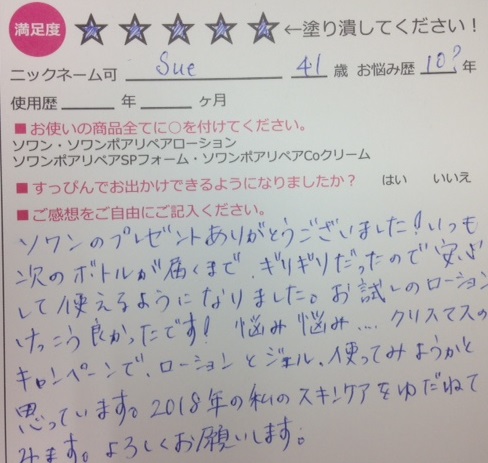 満足度 ←塗り潰してください!
ニックネーム可 Sue 41 歳 お悩み歴 10? 年
使用歴 年 ヶ月
■お使いの商品全てに○を付けてください。
ソワン・ソワンポアリペアローション
ソワンポアリペアSPフォーム・ソワンポアリペアCoクリーム
■すっぴんでお出かけできるようになりましたか? はい いいえ
■ご感想をご自由にご記入ください。
ソワンのプレゼントありがとうございました!いつも
次のボトルが届くまで、ギリギリだったので安心
して使えるようになりました。お試しのローション
けっこう良かったです! 悩み悩み.... クリスマスの
キャンペーンで、ローションとジェル、使ってみようかと
思っています。2018年の私のスキンケアをゆだねて
みます。よろしくお願いします。